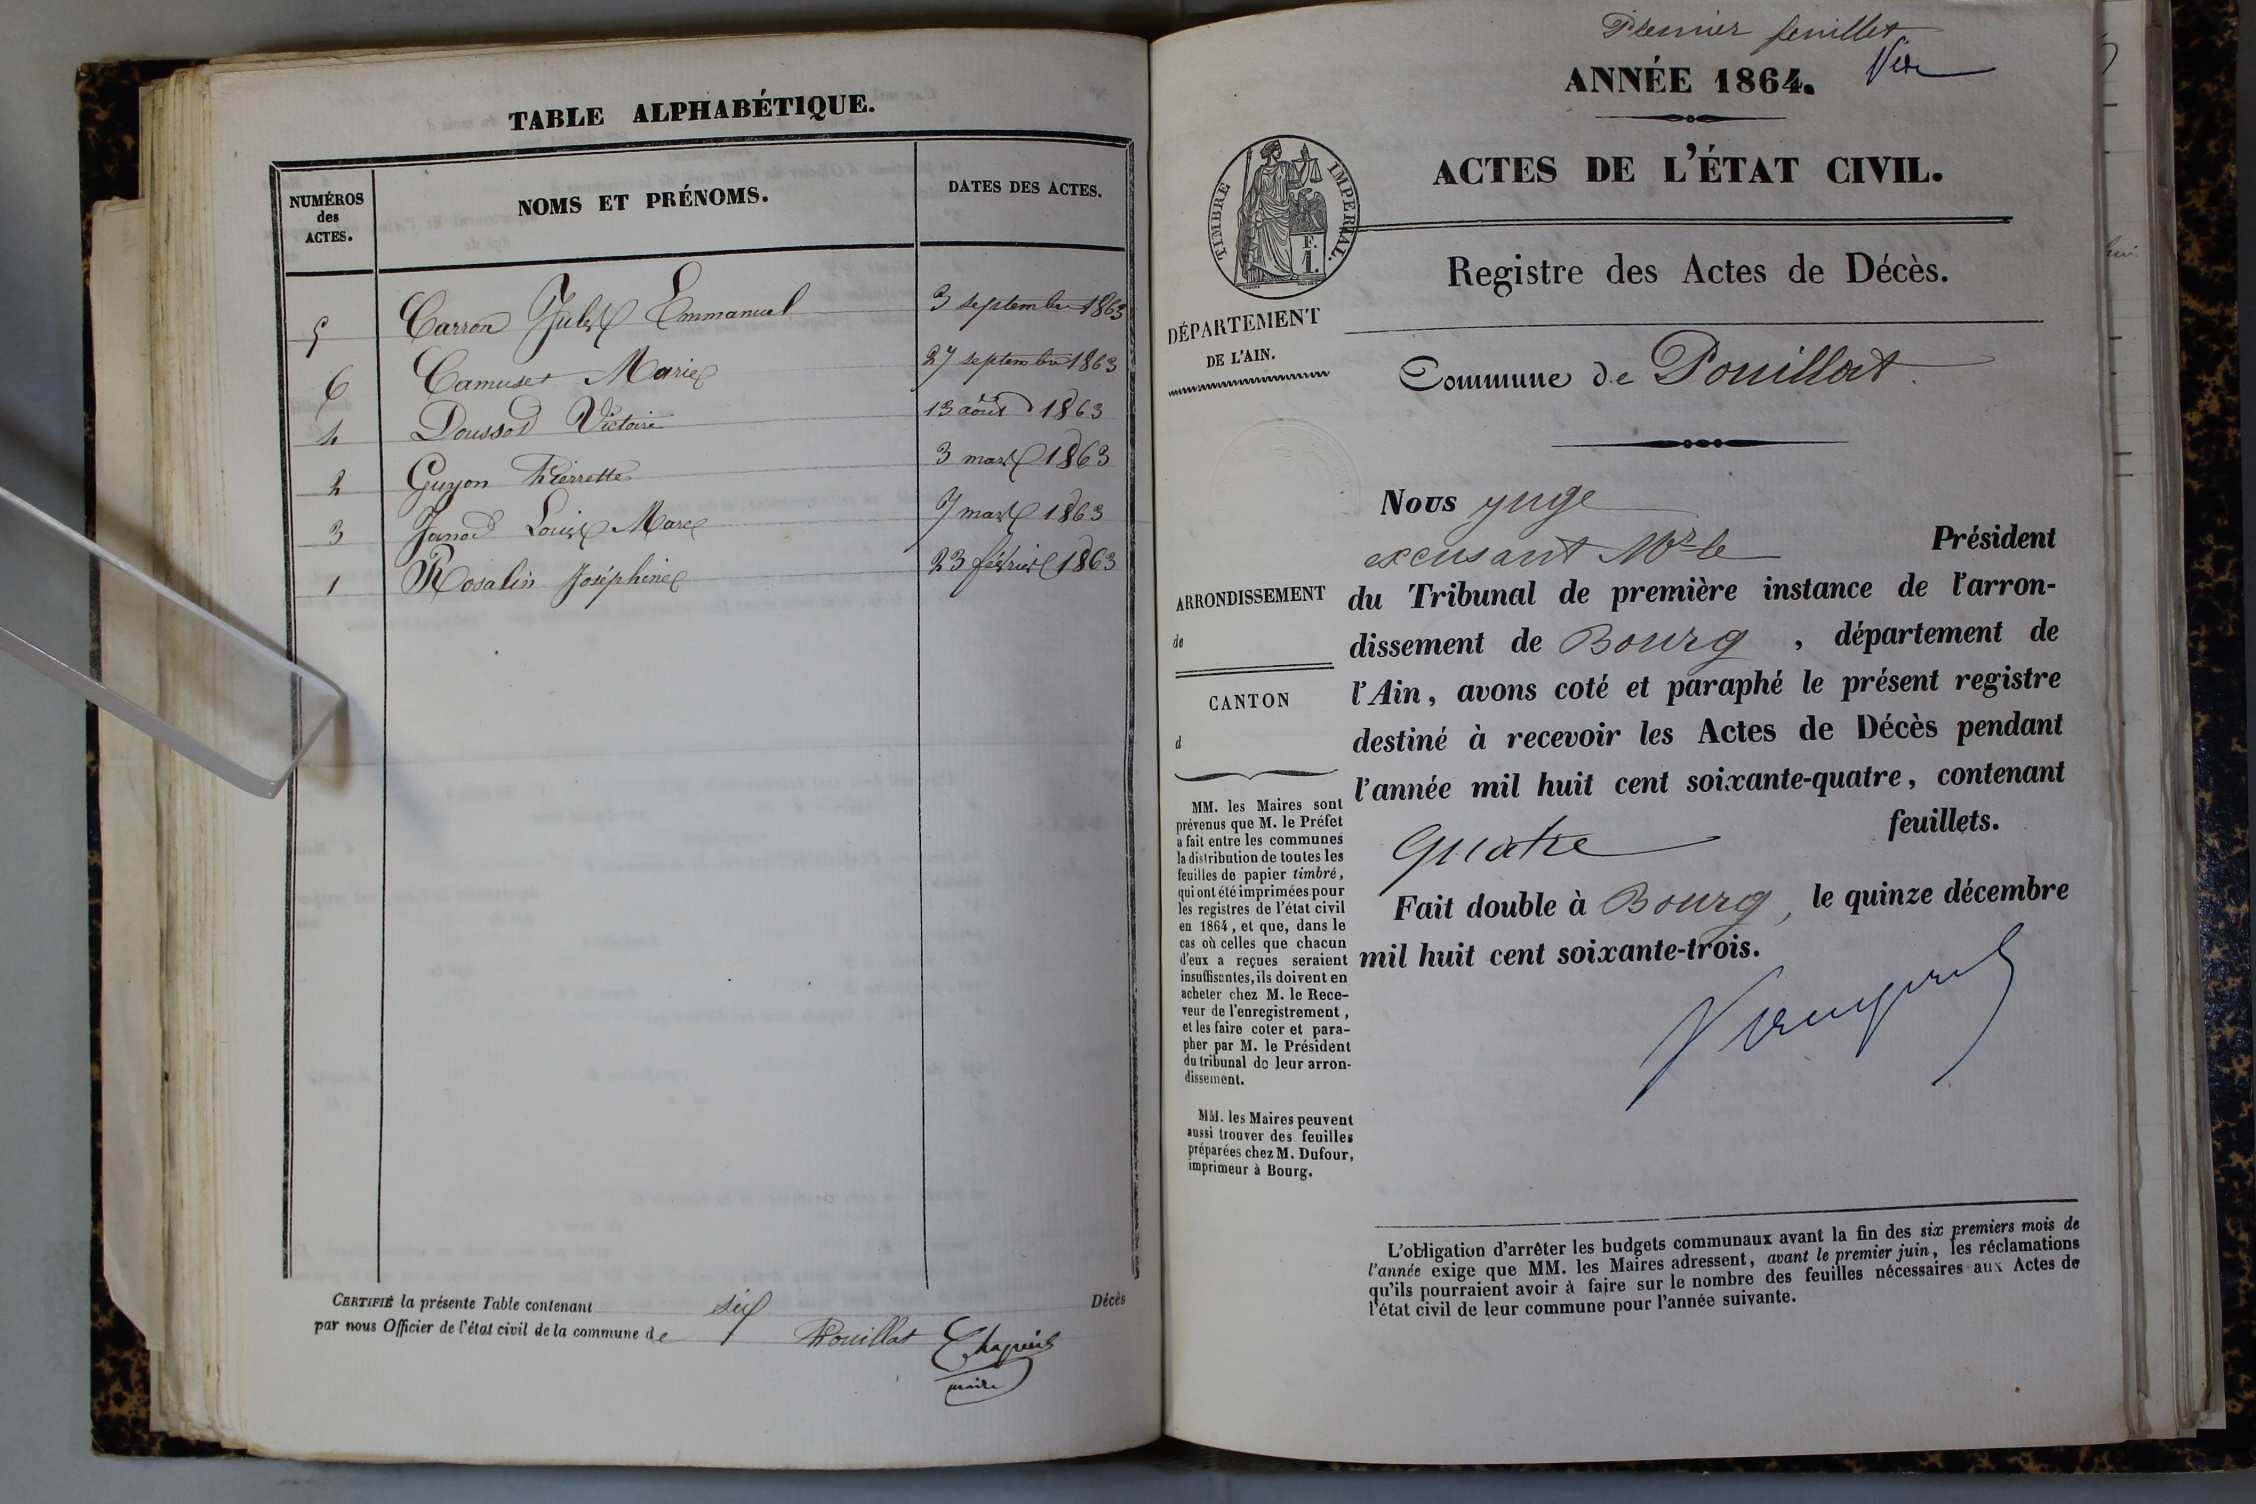 TABLE ALPHABÉTIQUE.
NUMÉROS des ACTES. NOMS ET PRÉNOMS. DATES DES ACTES.
5 Carron Jules Emmanuel 3 septembre 1863
6 Camuset Marie 27 septembre 1863
4 Doussod Victoire 13 août 1863
2 Guyon Pierrette 3 mars 1863
3 Janod Louis Marc 7 mars 1863
1 Rosalin Joséphine 23 février 1863
CERTIFIÉ la présente Table contenant six Décès
par nous Officier de l'état civil de la commune de Pouillat
maire
Premier feuillet
ANNÉE 1864.
ACTES DE L'ÉTAT CIVIL.
TIMBRE IMPERIAL.
F.
1.
Registre des Actes de Décès.
DÉPARTEMENT
DE L'AIN.
Commune de Pouillat.
ARRONDISSEMENT
de
CANTON
d
MM. les Maires sont
prévenus que M. le Préfet
a fait entre les communes
la distribution de toutes les
feuilles de papier timbré,
qui ont été imprimées pour
les registres de l'état civil
en 1864, et que, dans le
cas où celles que chacun
d'eux a reçues seraient
insuffisantes, ils doivent en
acheter chez M. le Rece-
veur de l'enregistrement,
et les faire coter et para-
pher par M. le Président
du tribunal de leur arron-
dissement.
MM. les Maires peuvent
aussi trouver des feuilles
préparées chez M. Dufour,
imprimeur à Bourg.
Nous juge
excusant Mr le Président
du Tribunal de première instance de l'arron-
dissement de Bourg, département de
l'Ain, avons coté et paraphé le présent registre
destiné à recevoir les Actes de Décès pendant
l'année mil huit cent soixante-quatre, contenant
quatre feuillets.
Fait double à Bourg, le quinze décembre
mil huit cent soixante-trois.
L'obligation d'arrêter les budgets communaux avant la fin des six premiers mois de
l'année exige que MM. les Maires adressent, avant le premier juin, les réclamations
qu'ils pourraient avoir à faire sur le nombre des feuilles nécessaires aux Actes de
l'état civil de leur commune pour l'année suivante.